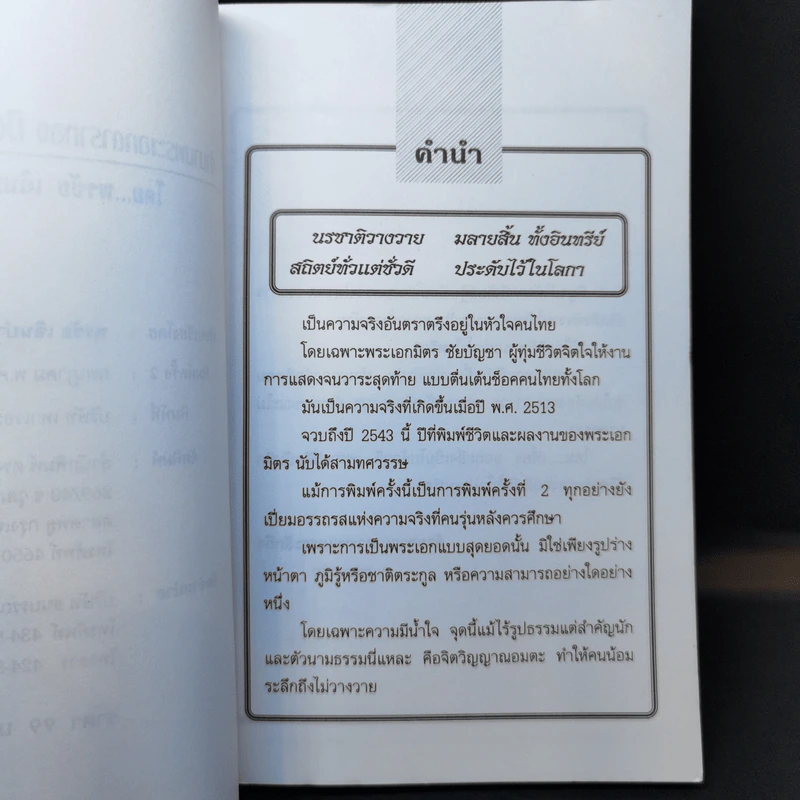 คำนำ
นรชาติวางวาย มลายสิ้น ทั้งอินทรีย์
สถิตย์ทั่วแต่ชั่วดี ประดับไว้ในโลกา
เป็นความจริงอันตราตรึงอยู่ในหัวใจคนไทย
โดยเฉพาะพระเอกมิตร ชัยบัญชา ผู้ทุ่มชีวิตจิตใจให้งาน
การแสดงจนวาระสุดท้าย แบบตื่นเต้นช็อคคนไทยทั้งโลก
มันเป็นความจริงที่เกิดขึ้นเมื่อปี พ.ศ. 2513
จวบถึงปี 2543 นี้ ปีที่พิมพ์ชีวิตและผลงานของพระเอก
มิตร นับได้สามทศวรรษ
แม้การพิมพ์ครั้งนี้เป็นการพิมพ์ครั้งที่ 2 ทุกอย่างยัง
เปี่ยมอรรถรสแห่งความจริงที่คนรุ่นหลังควรศึกษา
เพราะการเป็นพระเอกแบบสุดยอดนั้น มิใช่เพียงรูปร่าง
หน้าตา ภูมิรู้หรือชาติตระกูล หรือความสามารถอย่างใดอย่าง
หนึ่ง
โดยเฉพาะความมีน้ำใจ จุดนี้แม้ไร้รูปธรรมแต่สำคัญนัก
และตัวนามธรรมนี่แหละ คือจิตวิญญาณอมตะ ทำให้คนน้อม
ระลึกถึงไม่วางวาย